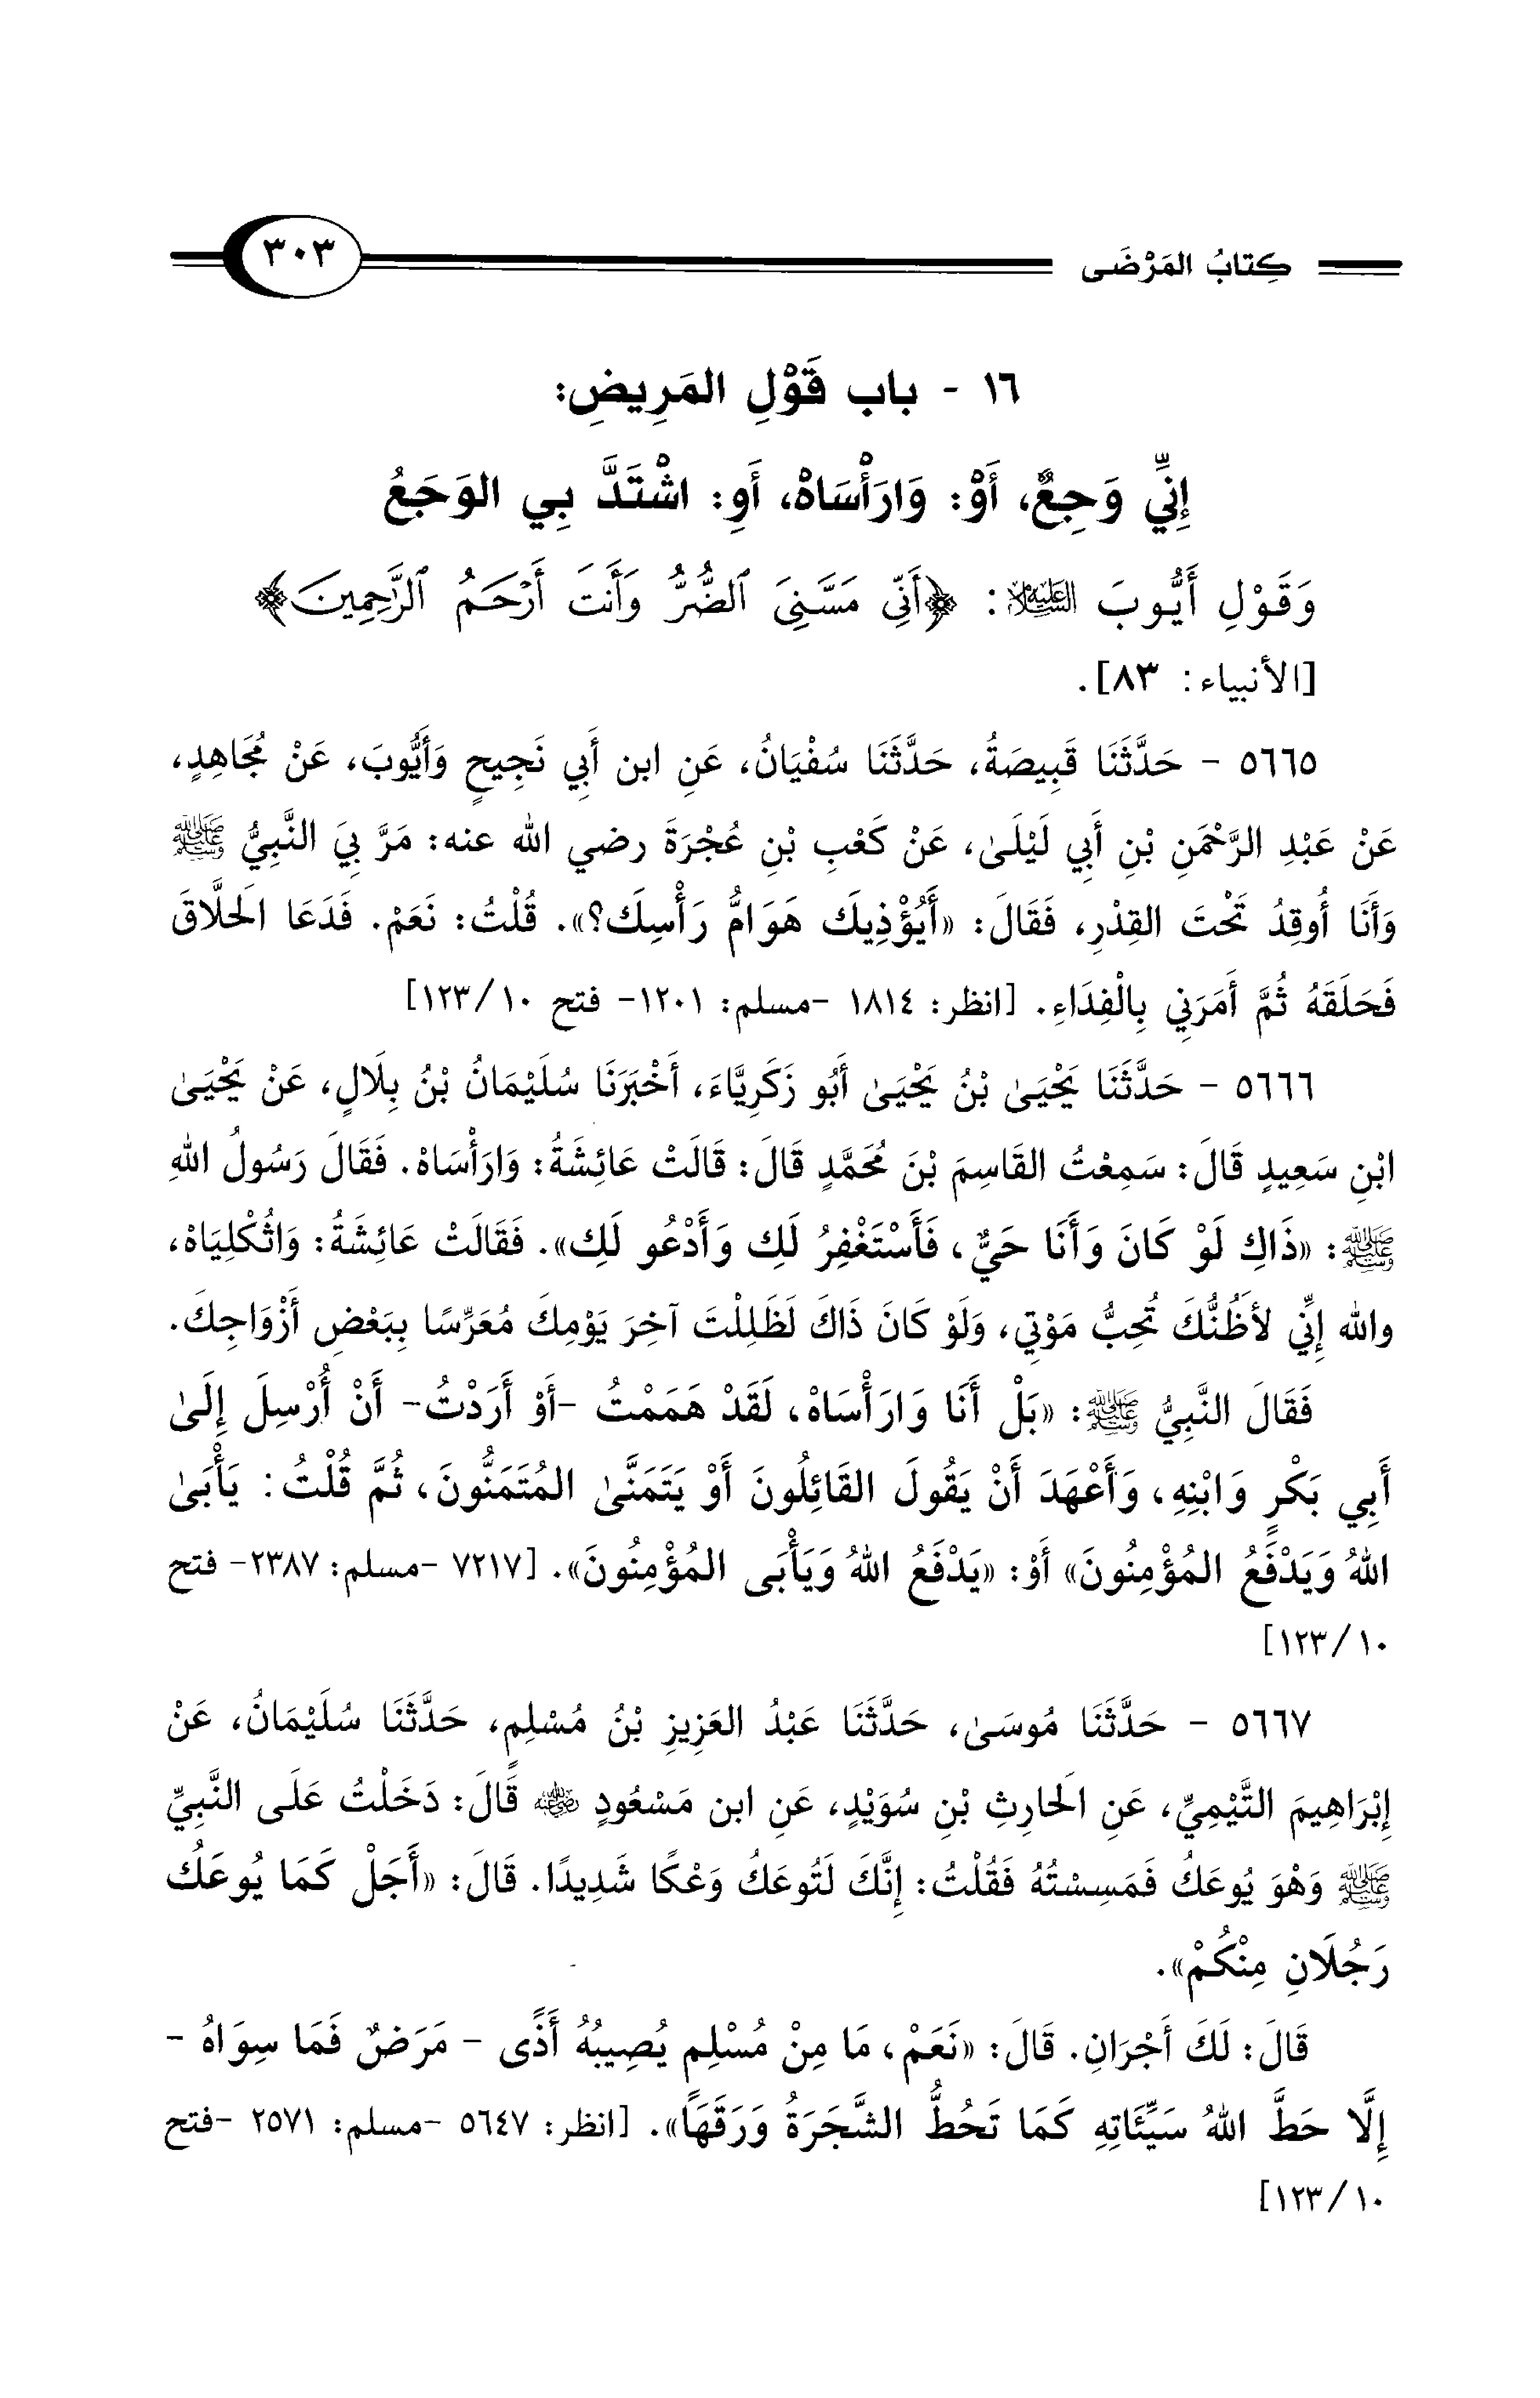 كِتابُ المَرْضَى ٣٠٣
١٦ - باب قَوْلِ المَرِيضِ:
إِنِّي وَجِعٌ، أَوْ: وَارَأْسَاهْ، أَوِ: اشْتَدَّ بِي الوَجَعُ
وَقَوْلِ أَيُّوبَ عليه السلام: ﴿أَنِّي مَسَّنِيَ ٱلضُّرُّ وَأَنتَ أَرْحَمُ ٱلرَّٰحِمِينَ﴾
[الأنبياء: ٨٣].
٥٦٦٥ - حَدَّثَنَا قَبِيصَةُ، حَدَّثَنَا سُفْيَانُ، عَنِ ابن أَبِي نَجِيحٍ وَأَيُّوبَ، عَنْ مُجَاهِدٍ،
عَنْ عَبْدِ الرَّحْمَنِ بْنِ أَبِي لَيْلَىٰ، عَنْ كَعْبِ بْنِ عُجْرَةَ رضي الله عنه: مَرَّ بِيَ النَّبِيُّ ﷺ
وَأَنَا أُوقِدُ تَحْتَ القِدْرِ، فَقَالَ: «أَيُؤْذِيكَ هَوَامُّ رَأْسِكَ؟». قُلْتُ: نَعَمْ. فَدَعَا الَحلَّاقَ
فَحَلَقَهُ ثُمَّ أَمَرَنِي بِالْفِدَاءِ. [انظر: ١٨١٤ -مسلم: ١٢٠١- فتح ١٢٣/١٠]
٥٦٦٦ - حَدَّثَنَا يَحْيَىٰ بْنُ يَحْيَىٰ أَبُو زَكَرِيَّاءَ، أَخْبَرَنَا سُلَيْمَانُ بْنُ بِلَالٍ، عَنْ يَحْيَىٰ
ابْنِ سَعِيدٍ قَالَ: سَمِعْتُ القَاسِمَ بْنَ مُحَمَّدٍ قَالَ: قَالَتْ عَائِشَةُ: وَارَأْسَاهْ. فَقَالَ رَسُولُ اللهِ
ﷺ: «ذَاكِ لَوْ كَانَ وَأَنَا حَيٌّ، فَأَسْتَغْفِرُ لَكِ وَأَدْعُو لَكِ». فَقَالَتْ عَائِشَةُ: وَاثُكْلِيَاهْ،
والله إِنِّي لأَظُنُّكَ تُحِبُّ مَوْتِي، وَلَوْ كَانَ ذَاكَ لَظَلِلْتَ آخِرَ يَوْمِكَ مُعَرِّسًا بِبَعْضِ أَزْوَاجِكَ.
فَقَالَ النَّبِيُّ ﷺ: «بَلْ أَنَا وَارَأْسَاهْ، لَقَدْ هَمَمْتُ -أَوْ أَرَدْتُ- أَنْ أُرْسِلَ إِلَىٰ
أَبِي بَكْرٍ وَابْنِهِ، وَأَعْهَدَ أَنْ يَقُولَ القَائِلُونَ أَوْ يَتَمَنَّىٰ المُتَمَنُّونَ، ثُمَّ قُلْتُ: يَأْبَىٰ
اللهُ وَيَدْفَعُ المُؤْمِنُونَ» أَوْ: «يَدْفَعُ اللهُ وَيَأْبَى المُؤْمِنُونَ». [٧٢١٧ -مسلم: ٢٣٨٧- فتح
١٢٣/١٠]
٥٦٦٧ - حَدَّثَنَا مُوسَىٰ، حَدَّثَنَا عَبْدُ العَزِيزِ بْنُ مُسْلِمٍ، حَدَّثَنَا سُلَيْمَانُ، عَنْ
إِبْرَاهِيمَ التَّيْمِيِّ، عَنِ الَحارِثِ بْنِ سُوَيْدٍ، عَنِ ابن مَسْعُودٍ رضي الله عنه قَالَ: دَخَلْتُ عَلَى النَّبِيِّ
ﷺ وَهْوَ يُوعَكُ فَمَسِسْتُهُ فَقُلْتُ: إِنَّكَ لَتُوعَكُ وَعْكًا شَدِيدًا. قَالَ: «أَجَلْ كَمَا يُوعَكُ
رَجُلَانِ مِنْكُمْ».
قَالَ: لَكَ أَجْرَانِ. قَالَ: «نَعَمْ، مَا مِنْ مُسْلِمٍ يُصِيبُهُ أَذًى - مَرَضٌ فَمَا سِوَاهُ -
إِلَّا حَطَّ اللهُ سَيِّئَاتِهِ كَمَا تَحُطُّ الشَّجَرَةُ وَرَقَهَا». [انظر: ٥٦٤٧ -مسلم: ٢٥٧١ -فتح
١٢٣/١٠]